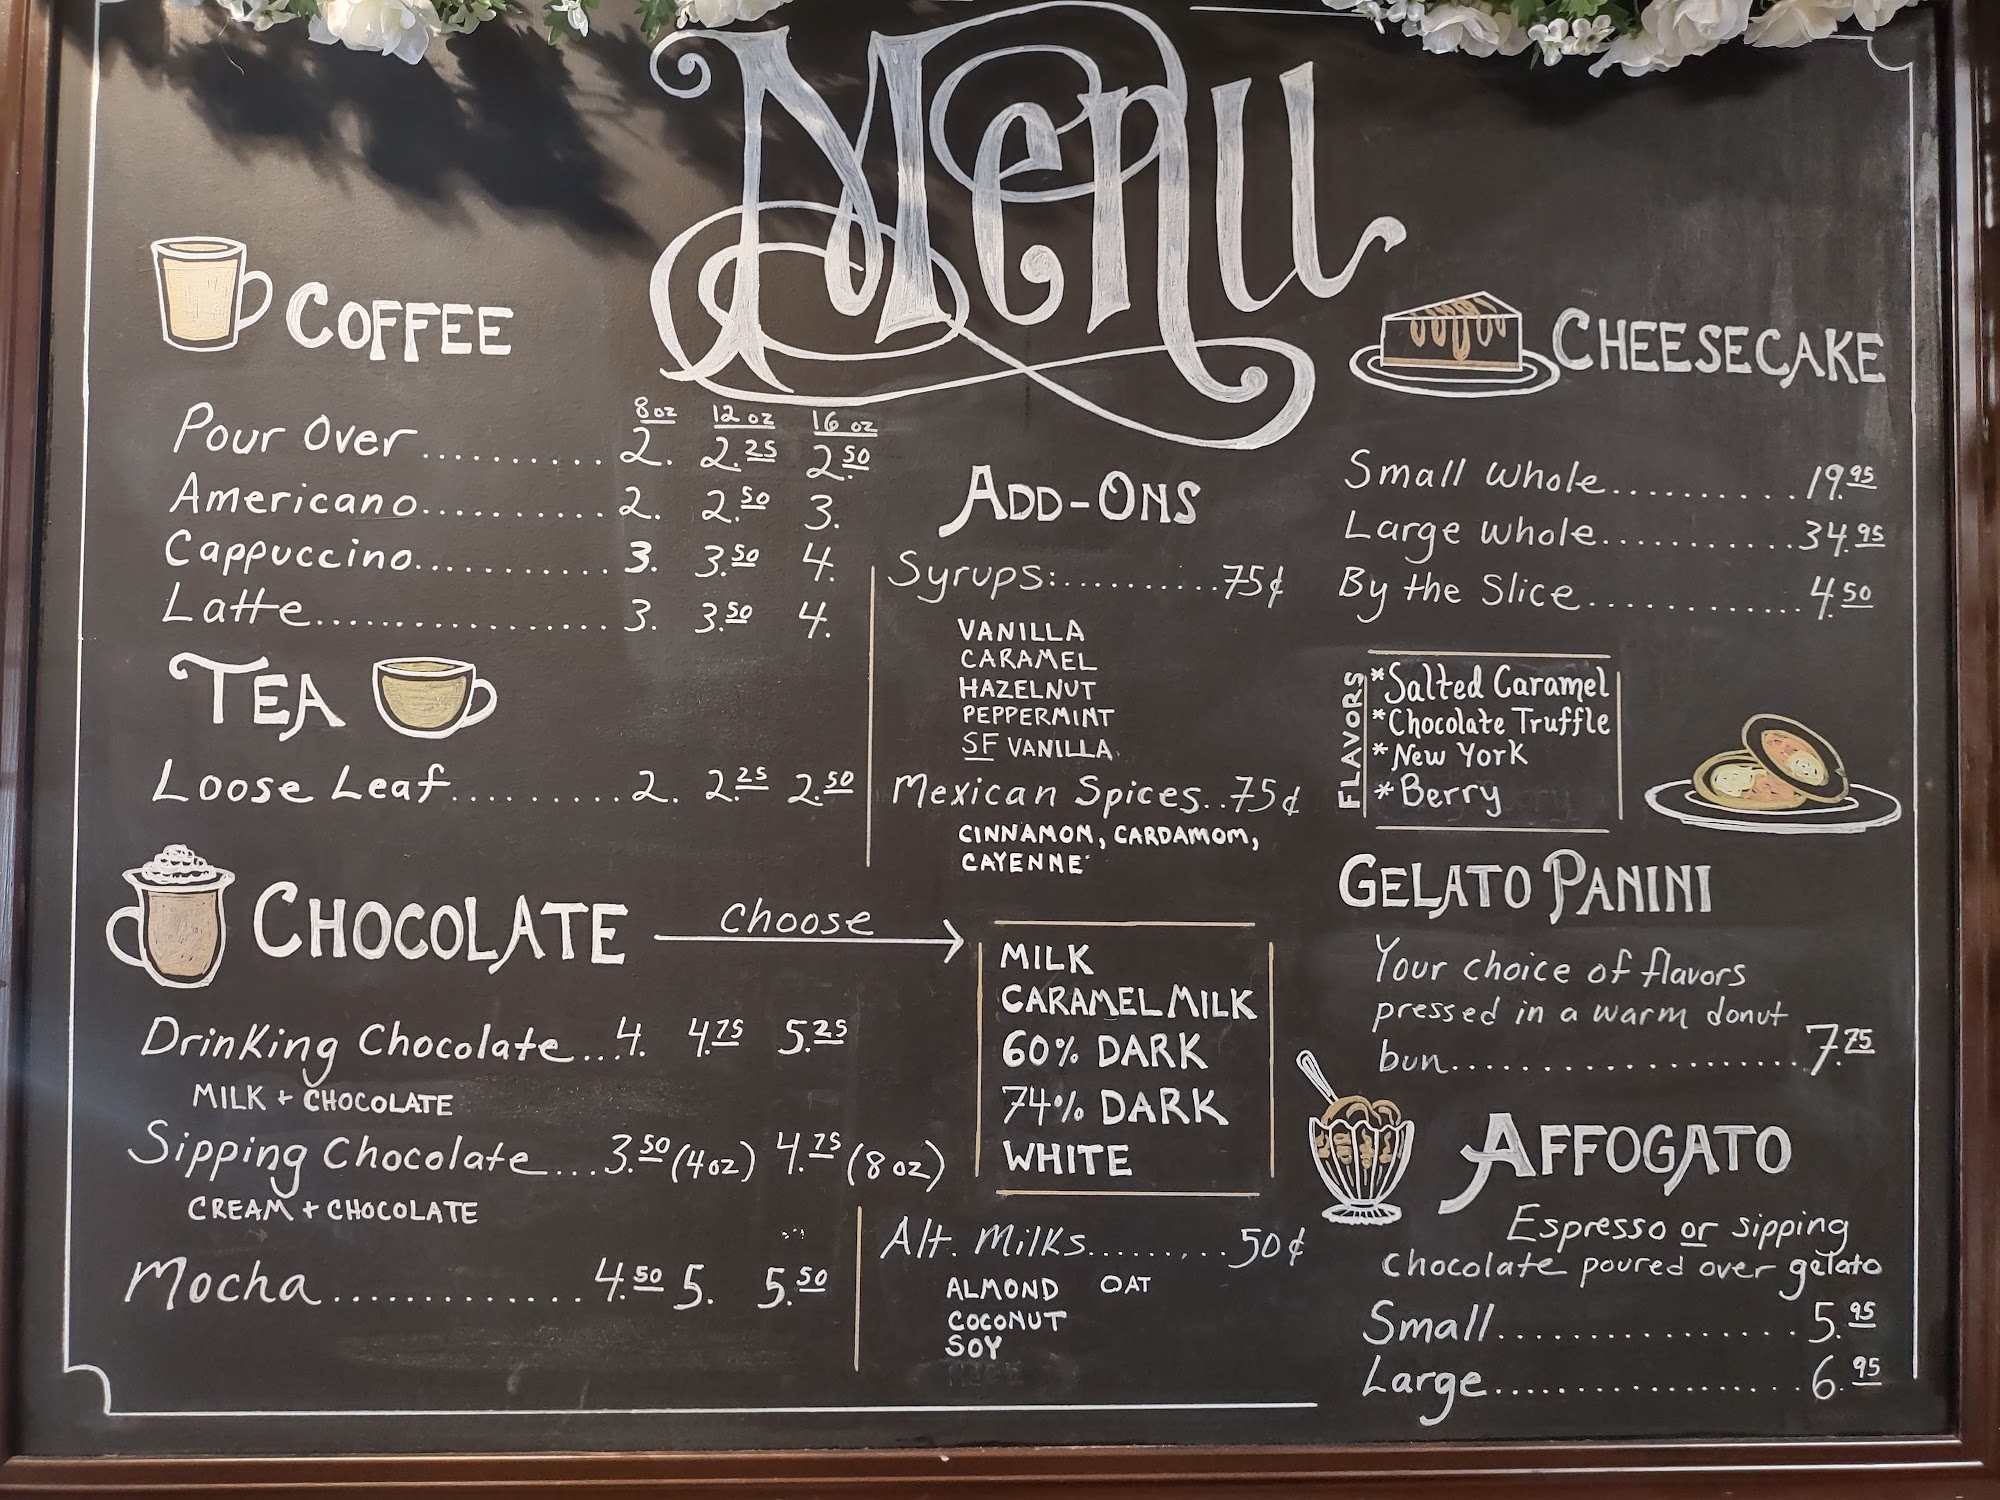 Menu
COFFEE
8oz 12 oz 16 oz
Pour Over.......... 2. 2.25 2.50
Americano.......... 2. 2.50 3.
Cappuccino............ 3. 3.50 4.
Latte.................. 3. 3.50 4.
TEA
Loose Leaf......... 2. 2.25 2.50
CHOCOLATE choose
Drinking Chocolate...4. 4.75 5.25
MILK + CHOCOLATE
Sipping Chocolate...3.50 (4oz) 4.75 (8oz)
CREAM + CHOCOLATE
Mocha............. 4.50 5. 5.50
ADD-ONS
Syrups:..........75¢
VANILLA
CARAMEL
HAZELNUT
PEPPERMINT
SF VANILLA
Mexican Spices..75¢
CINNAMON, CARDAMOM,
CAYENNE
MILK
CARAMEL MILK
60% DARK
74% DARK
WHITE
Alt. Milks.........50¢
ALMOND OAT
COCONUT
SOY
CHEESECAKE
Small whole..........19.95
Large whole...........34.95
By the Slice............4.50
FLAVORS
*Salted Caramel
*Chocolate Truffle
*New York
*Berry
GELATO PANINI
Your choice of flavors
pressed in a warm donut
bun....................7.75
AFFOGATO
Espresso or sipping
chocolate poured over gelato
Small................5.95
Large..................6.95